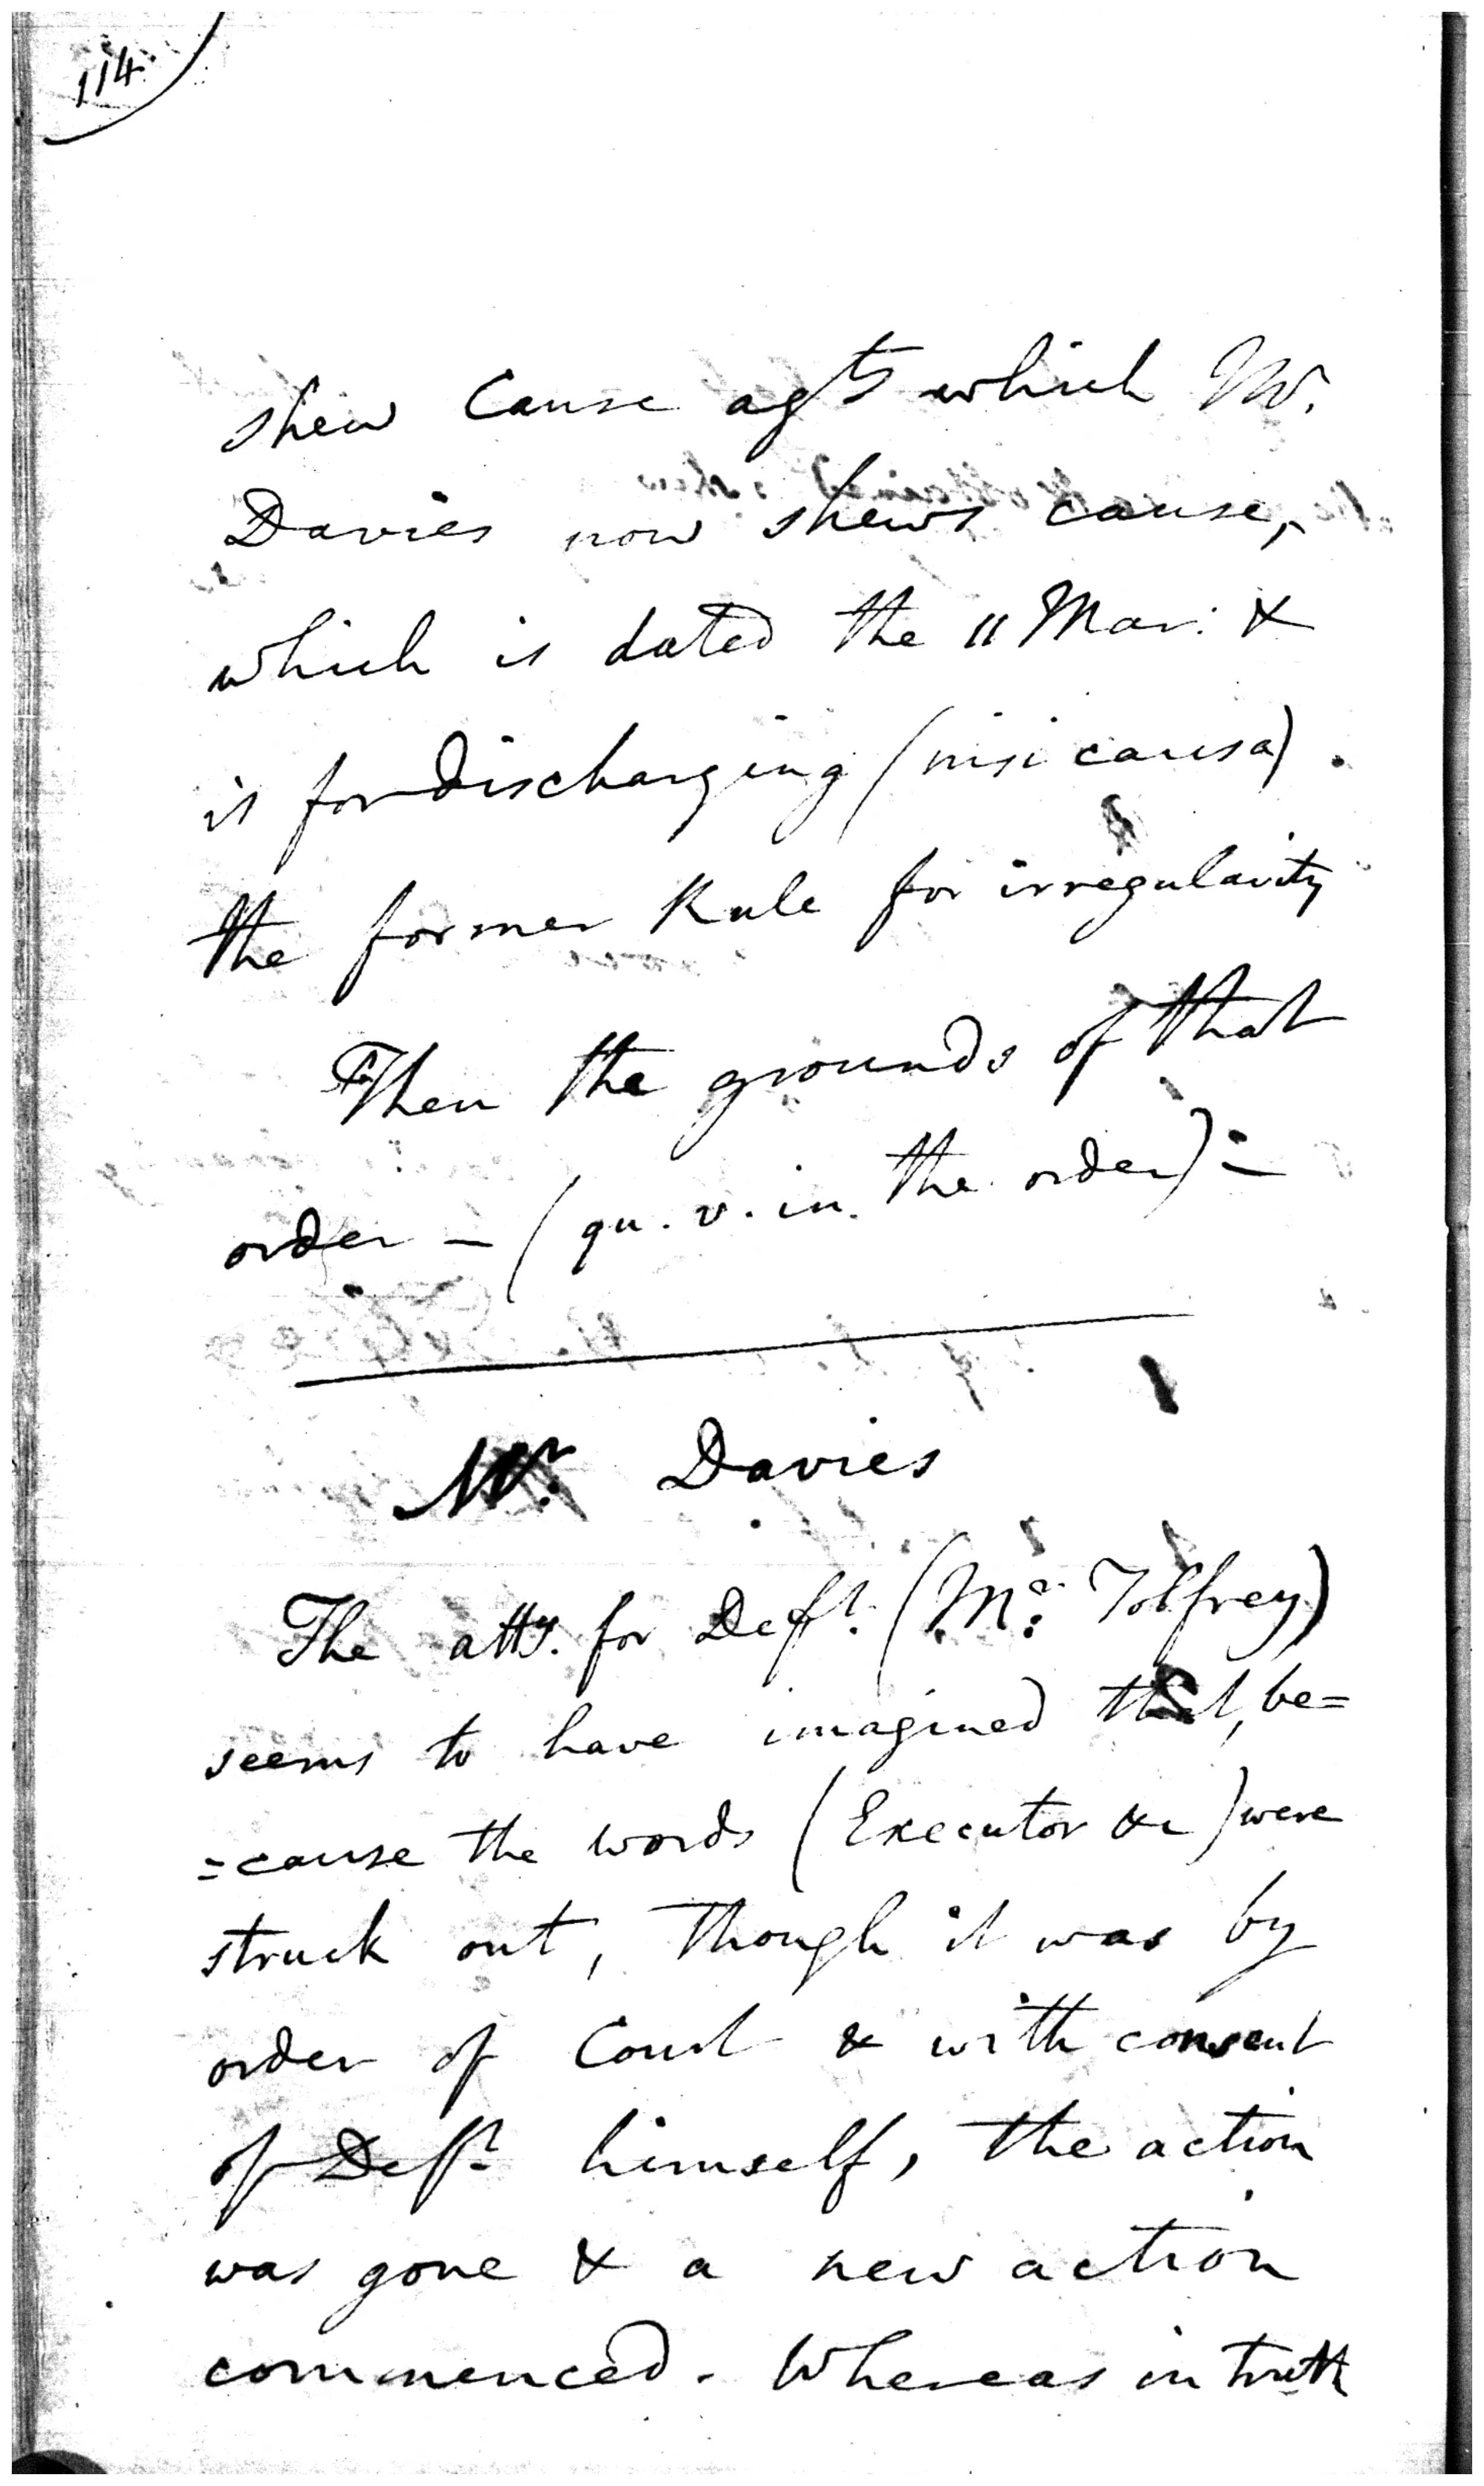 114
shew Cause agst which Mr.
Davies now shews cause,
which is dated the 11 Mar: &
is for discharging (nisi causa).
the former Rule for irregularity
Then the grounds of that
order - (qu. v. in the order) -
Mr. Davies
The atty. for Deft. (Mr. Tolfrey)
seems to have imagined that, be=
=cause the words (Executor &c) were
struck out, though it was by
order of Court & with consent
of Deft. himself, the action
was gone & a new action
commenced. Whereas in truth